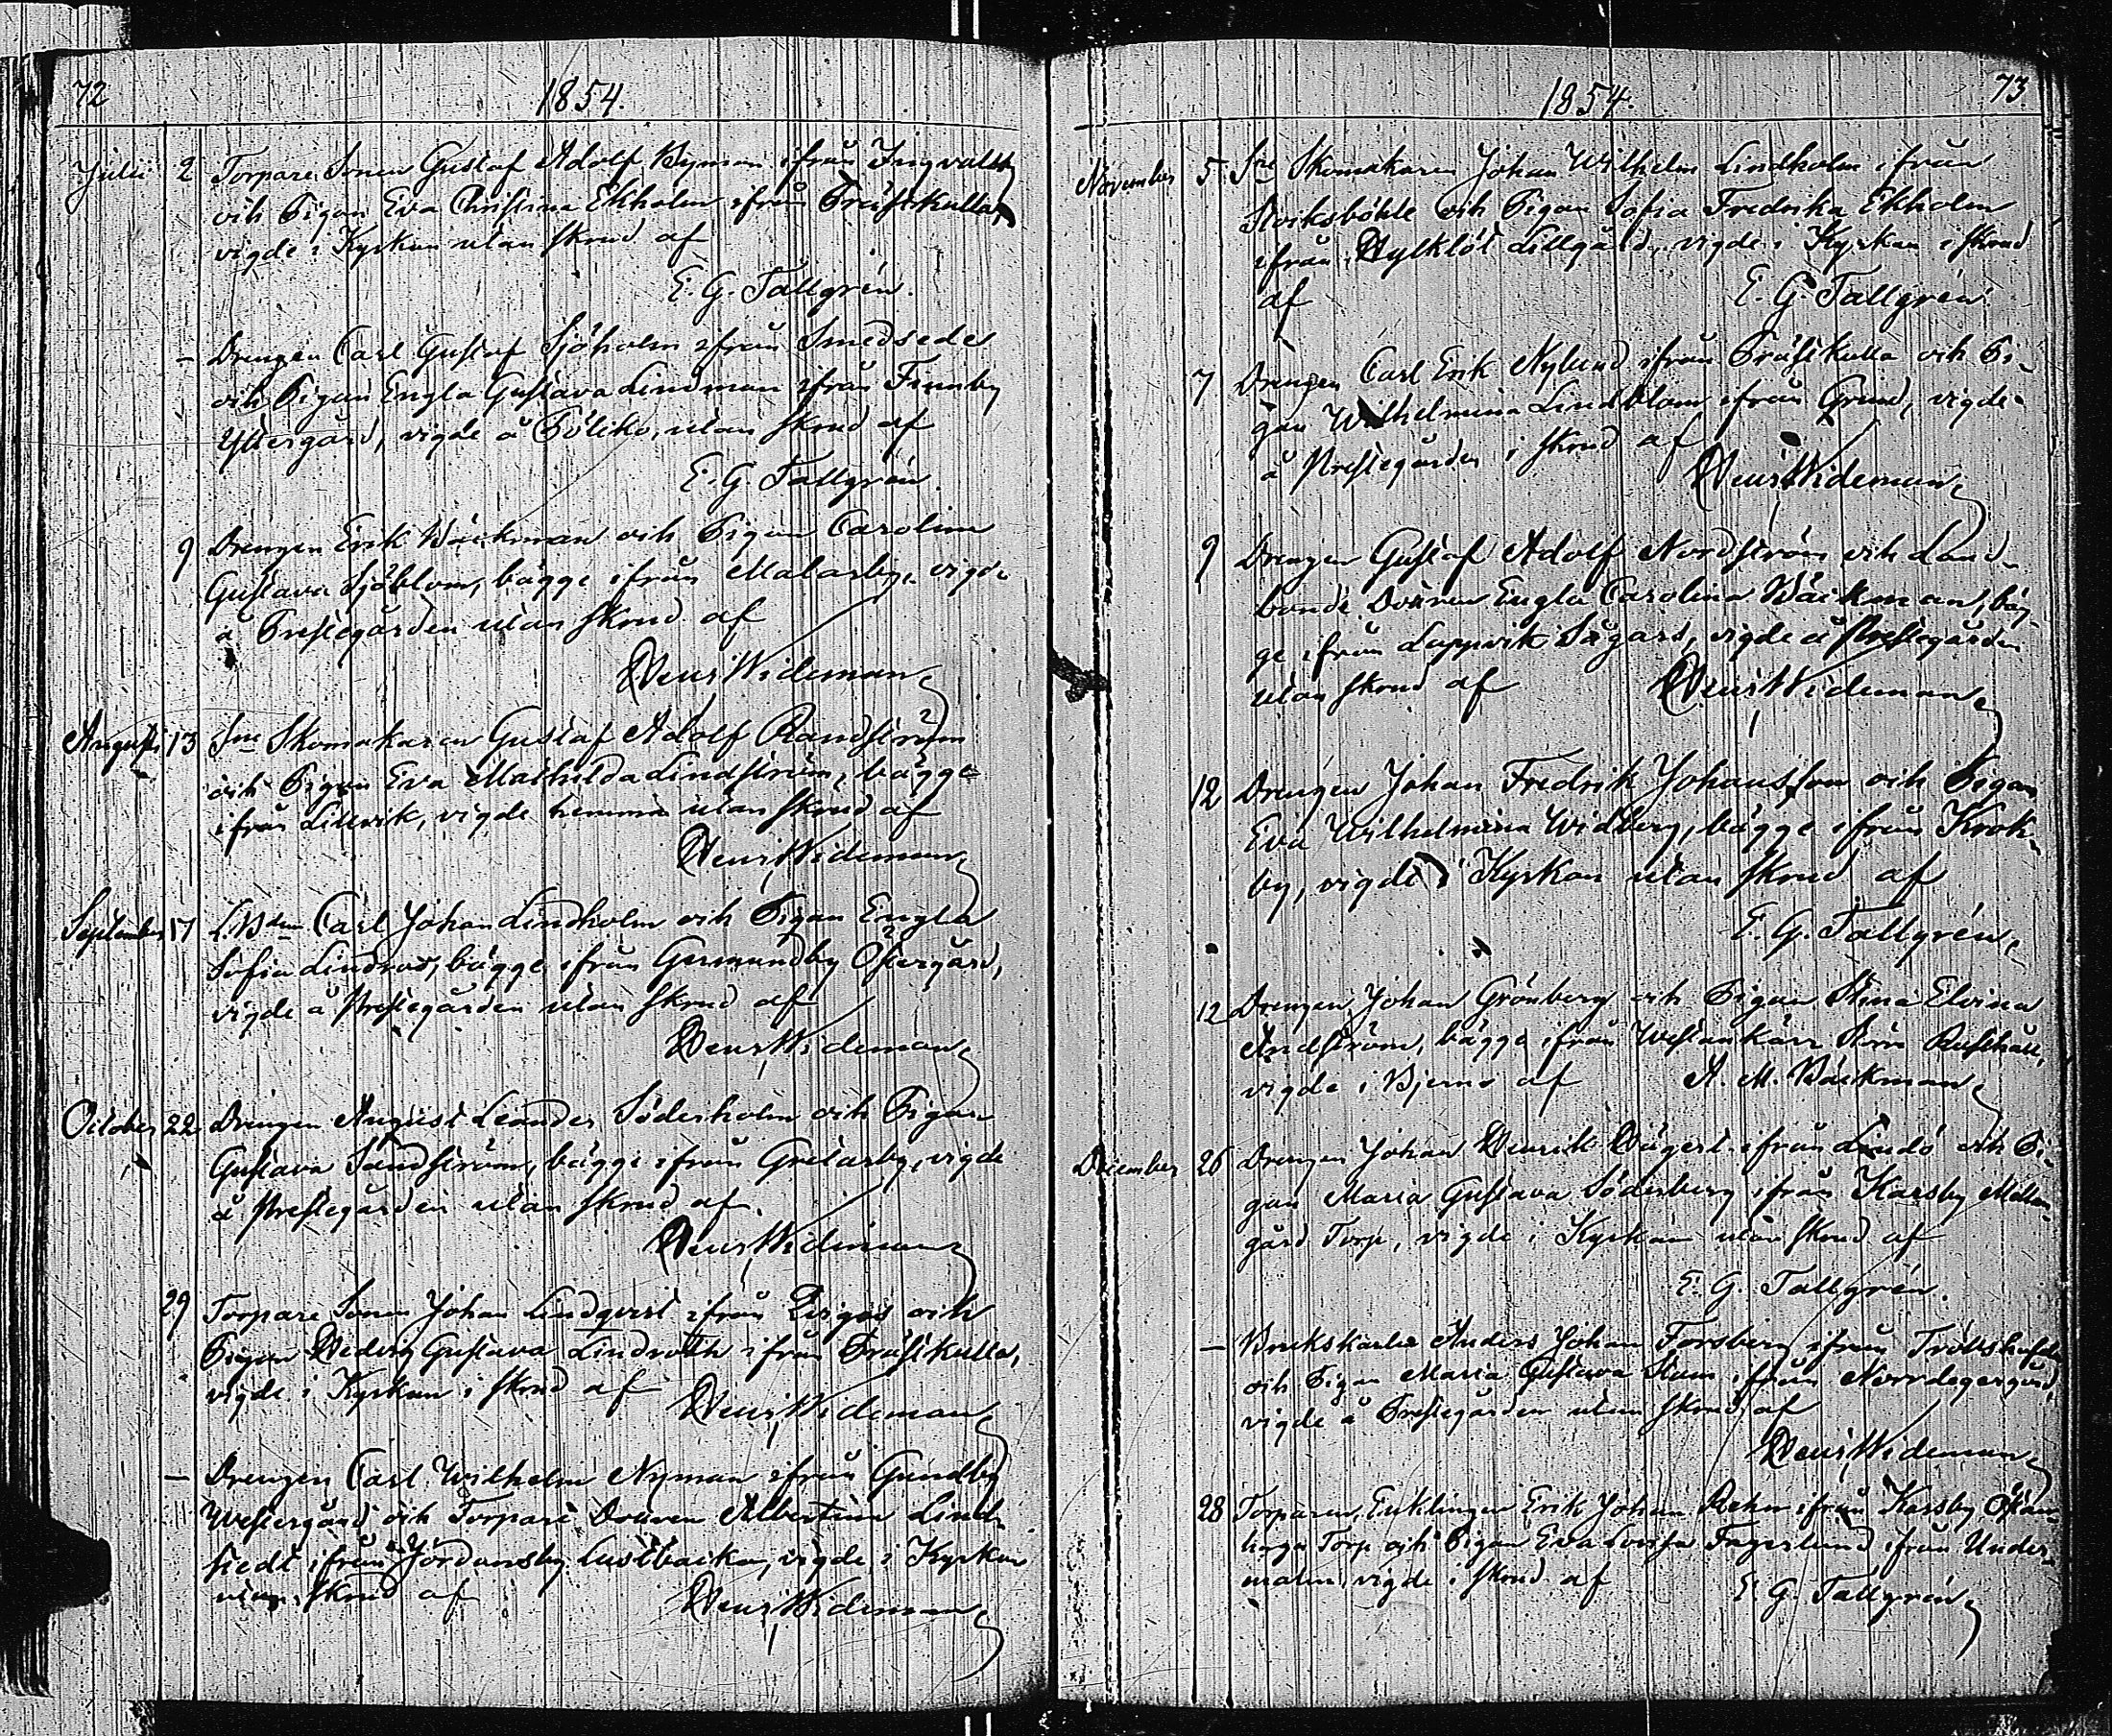 72
1854.
Julii 2 Torpare Sonen Gustaf Adolf Byman ifrån Ingvalsby
och Pigan Eva Christina Ekholm ifrån Präskulla,
vigde i Kyrkan utan skrud af
E. G. Tallgrén.
— Drengen Carl Gustaf Sjöholm ifrån Smedsede
och Pigan Engla Gustava Lindman ifrån Finnby
Yttergård, vigde å utan skrud af
E. G. Tallgrén
9 Drengen Erik Bäckman och Pigan Carolina
Gustava Sjöblom, bägge ifrån Malarby, vigde
å Prestegården utan skrud af
Henr Wideman
Augusti 13 Skomakaren Gustaf Adolf Randström
och Pigan Eva Mathilda Lindström, bägge
ifrån Lillvik, vigde hemma utan skrud af
Henr Wideman
September 17 Carl Johan Lindholm och Pigan Engla
Sofia Lindros, bägge ifrån Germundby Östergård,
vigde å Prestegården utan skrud af
Henr Wideman
October 22 Drengen August Leander Söderholm och Pigan
Gustava Sandström, bägge ifrån Gretarby, vigde
å Prestegården utan skrud af
Henr Wideman
29 Torpare Sonen Johan Lindqvist ifrån och
Pigan Hedvig Gustava Lindroth ifrån Präskulla,
vigde i Kyrkan i skrud af
Henr Wideman
— Drengen Carl Wilhelm Nyman ifrån Gundby
Westergård och Torpare Dottren Albertina Lind-
stedt ifrån Jordansby Lustbacka, vigde i Kyrkan
utan skrud af
Henr Wideman
1854.
73.
November 5 Skomakaren Johan Wilhelm Lindholm ifrån
och Pigan Sofia Fredrika Ekholm
ifrån Lillgård, vigde i Kyrkan i skrud
af
E. G. Tallgrén
7 Drengen Carl Erik Nylund ifrån Präskulla och Pi-
gan Wilhelmina Lindblom ifrån Grind, vigde
å Prestegården i skrud af
Henr Wideman
9 Drengen Gustaf Adolf Nordström och Land-
bonde Dottren Engla Carolina Bäckman, bäg-
ge ifrån Lappvik Sågars, vigde å Prestegården
utan skrud af
Henr Wideman
12 Drengen Johan Fredrik Johansson och Pigan
Eva Wilhelmina Widberg, bägge ifrån Krok-
by, vigde i Kyrkan utan skrud af
E. G. Tallgrén
12 Drengen Johan Grönberg och Pigan Stina Elvina
Andström, bägge ifrån Westankärr Rusthåll,
vigde i Bjerno af
A. M. Bäckman
December 26 Drengen Johan Henrik Hägert ifrån Lindö och Pi-
gan Maria Gustava Söderberg ifrån Karsby Mellan-
gård Torp, vigde i Kyrkan utan skrud af
E. G. Tallgrén.
— Brukskarlen Anders Johan Forsberg ifrån
och Pigan Maria Gustava Stam ifrån Norrdegergård,
vigde å Prestegården utan skrud af
Henr Wideman
28 Torparen, Enklingen Erik Johan Rehn ifrån Karsby
Torp och Pigan Eva Lovisa Fagerlund ifrån Under-
malm, vigde i skrud af
E. G. Tallgrén